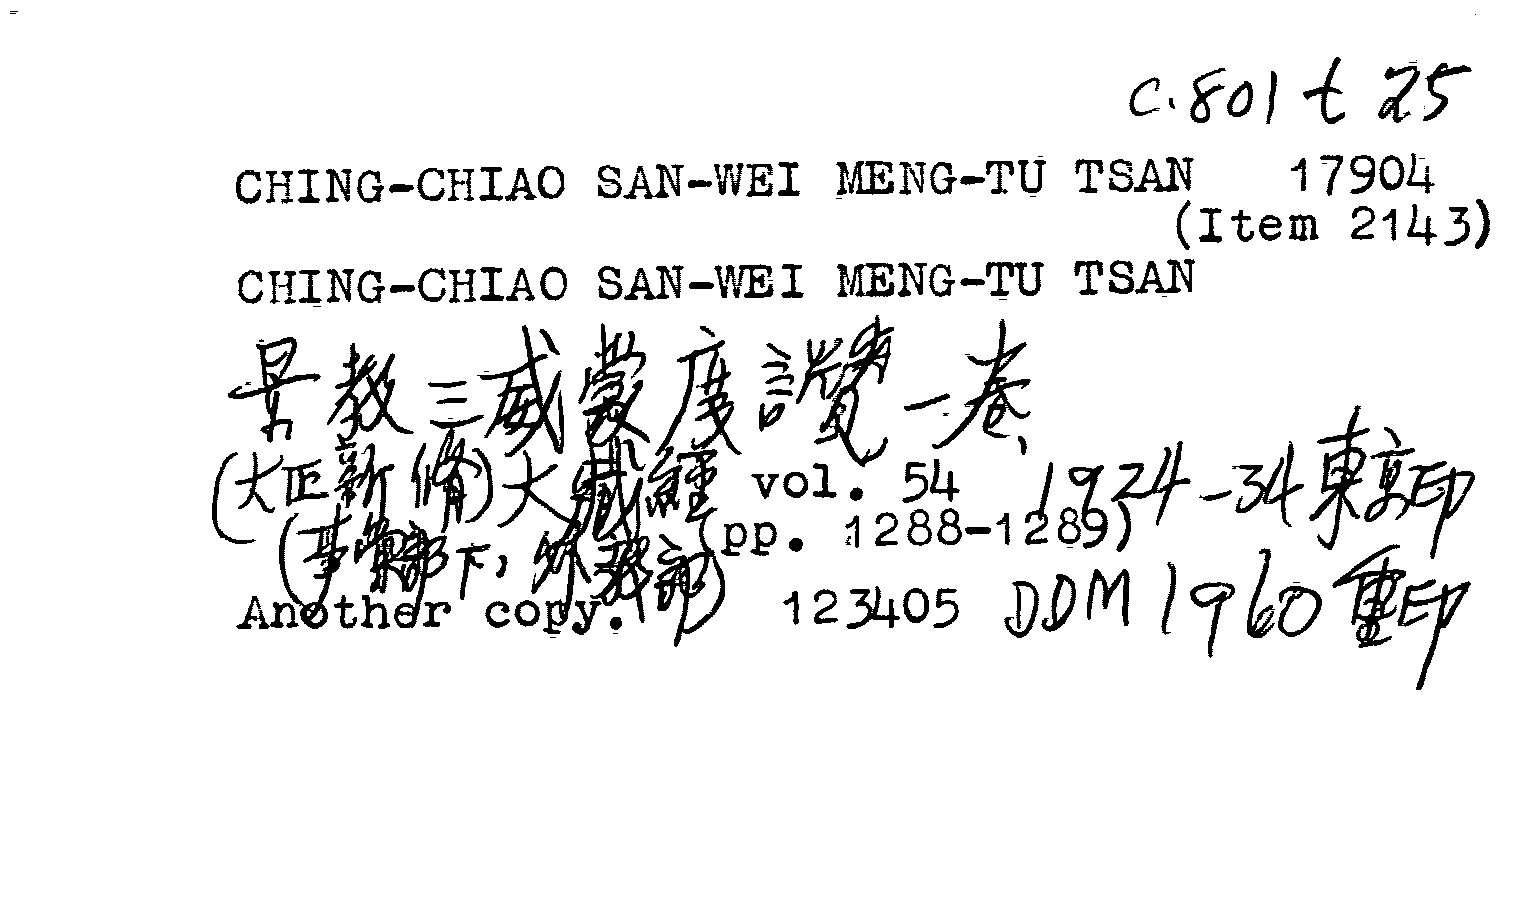 C.801 t 25
CHING-CHIAO SAN-WEI MENG-TU TSAN 17904
(Item 2143)
CHING-CHIAO SAN-WEI MENG-TU TSAN
景教三威蒙度讚一卷
(大正新脩)大藏經 vol. 54 1924-34東京印
(事彙部下,外教部) (pp. 1288-1289)
Another copy. 123405 DDM 1960重印